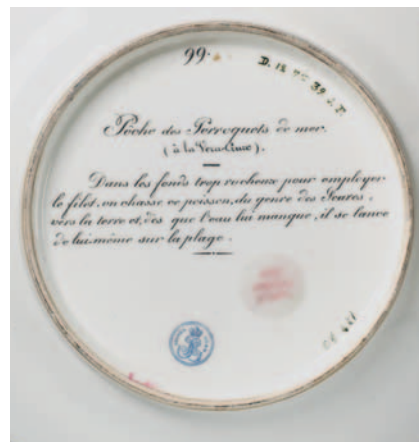 99.
Pêche des Perroquets de mer.
(à la Vera-Cruz).
Dans les fonds trop rocheux pour employer
le filet, on chasse ce poisson, du genre des Scares,
vers la terre et, dès que l'eau lui manque, il se lance
de lui-même sur la plage.